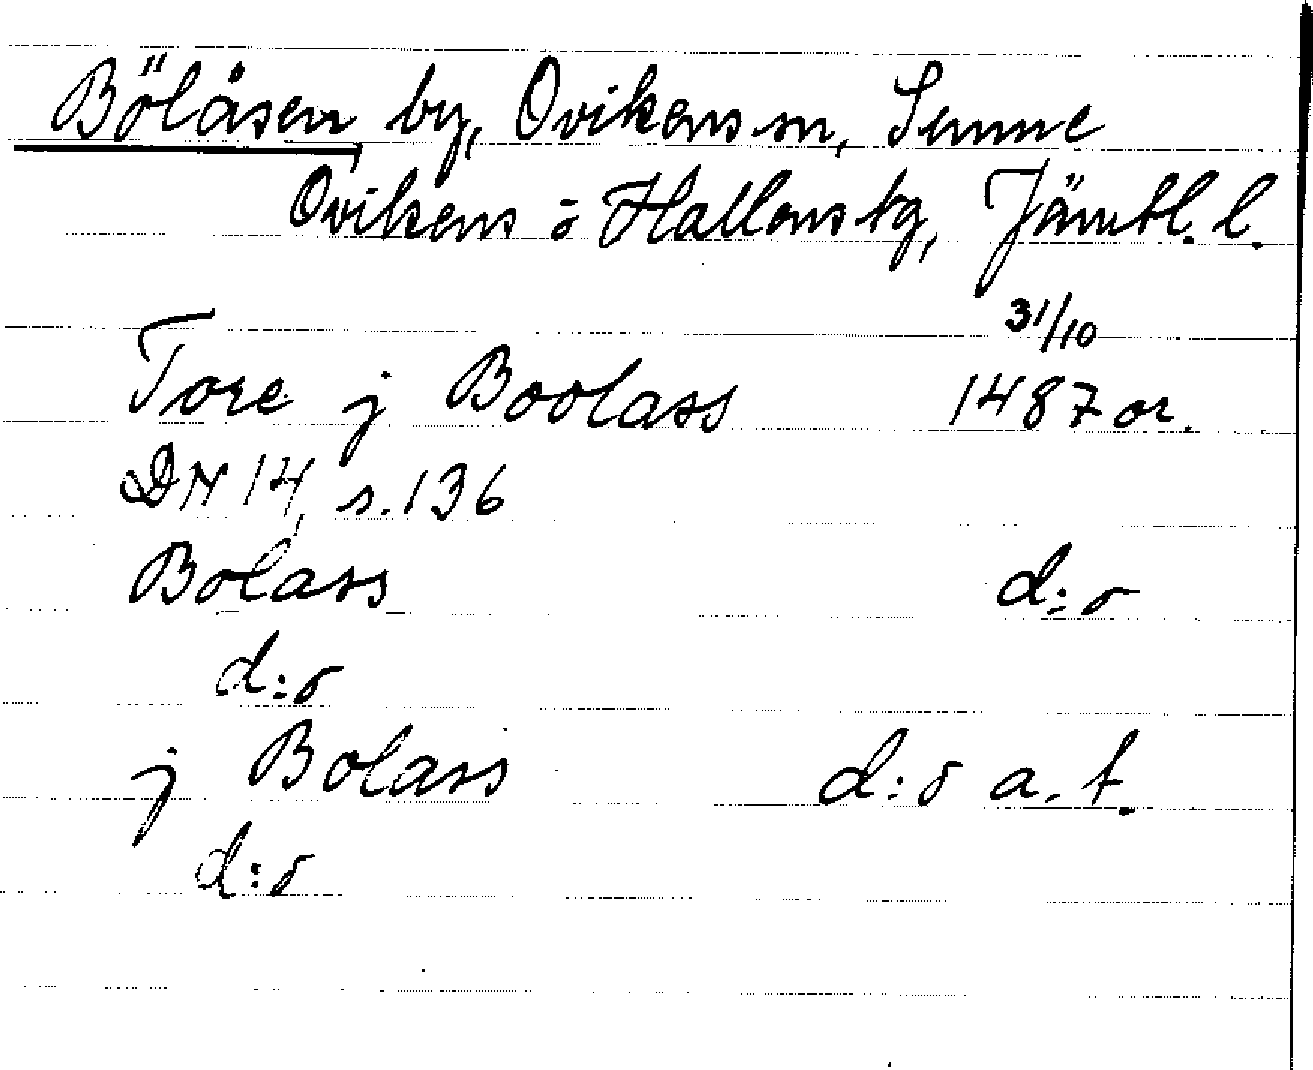 Bölåsen by, Ovikens sn, Sunne
Ovikens o Hallens tg, Jämtl. l.
31/10
Tore j Boolass 1487 or.
DN 14, s. 136
Bolass d:o
d:o
j Bolass d:o a. t.
d:o